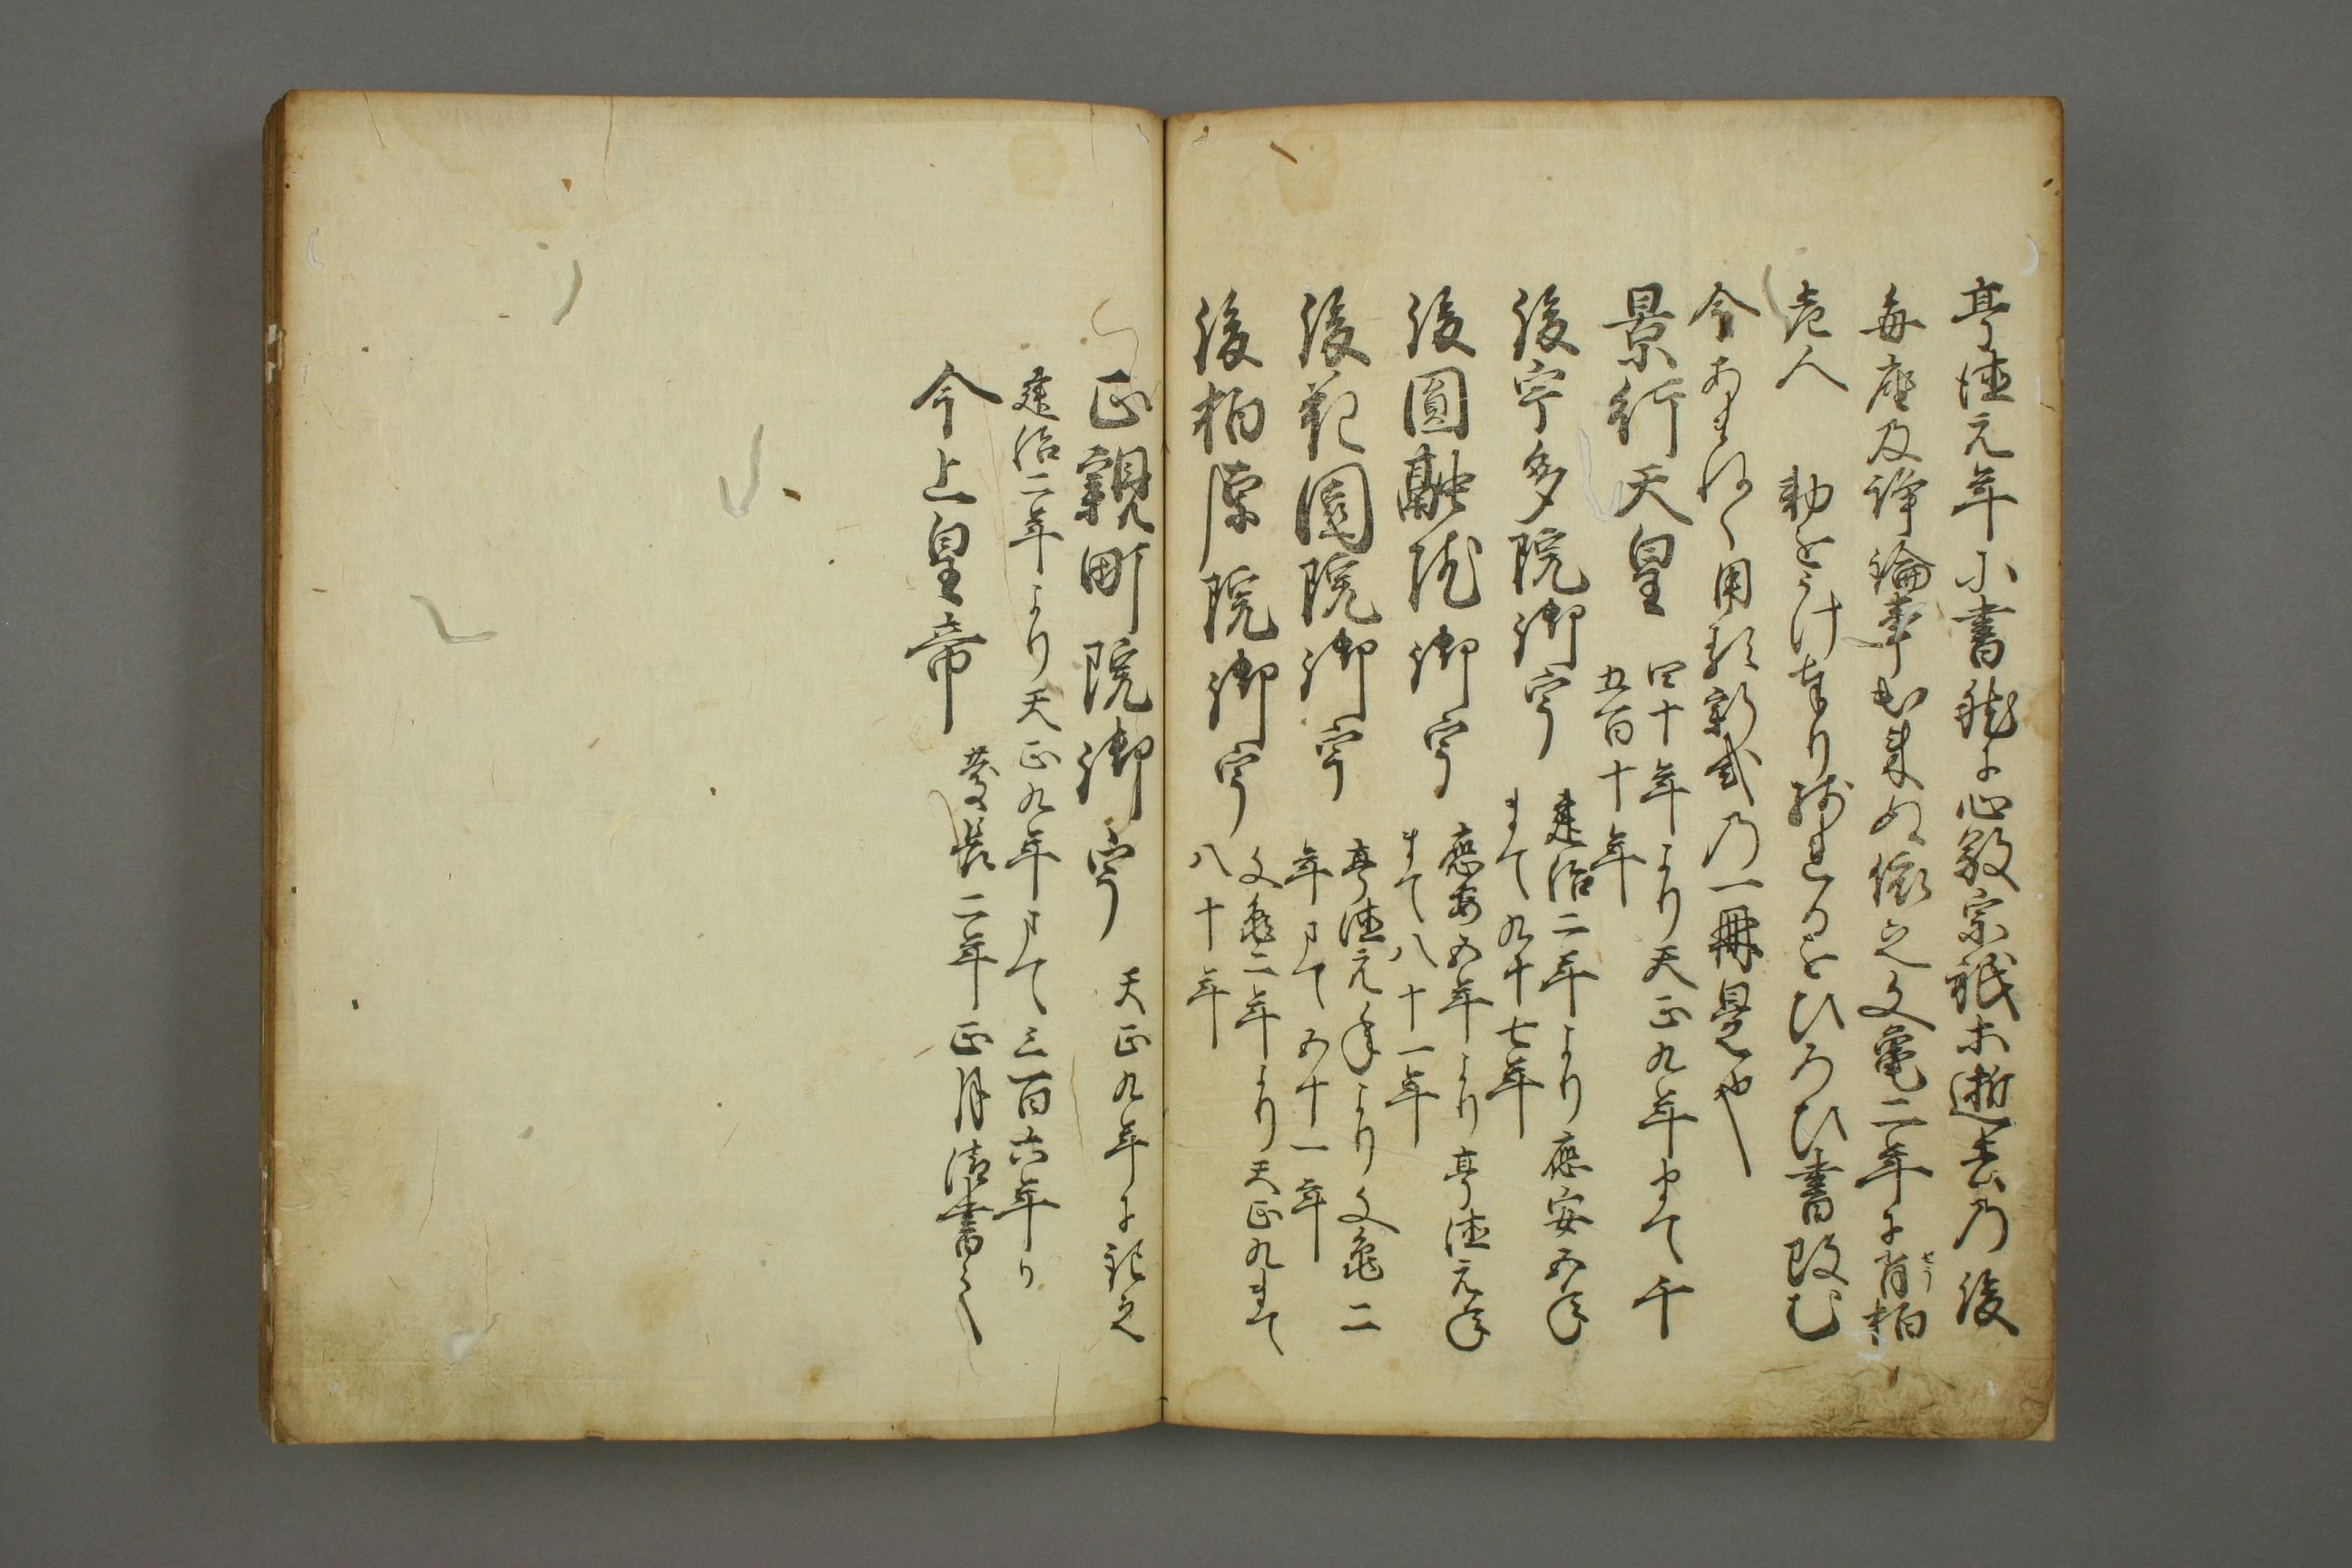 享徳元年小書

然に心敬宗祇も逝去乃後
毎座及諍論事出来ぬ依之文亀二年に肖柏
せう
老人 勅をうけ奉り残れるをひろひ書改む
今あまねく用る新式乃一冊是也
景行天皇 四十年より天正九年まて千
五百十年
後宇多院御宇 建治二年より應安五年
まて九十七年
後圓融院御宇 應安五年より享徳元年
まて八十一年
後花園院御宇 享徳元年より文亀二
年まて五十一年
後柏原院御宇 文亀二年より天正九まて
八十年
正親町院御宇 天正九年に記之
建治二年より天正九年まて三百六年か
今上皇帝 慶長二年正月清書之